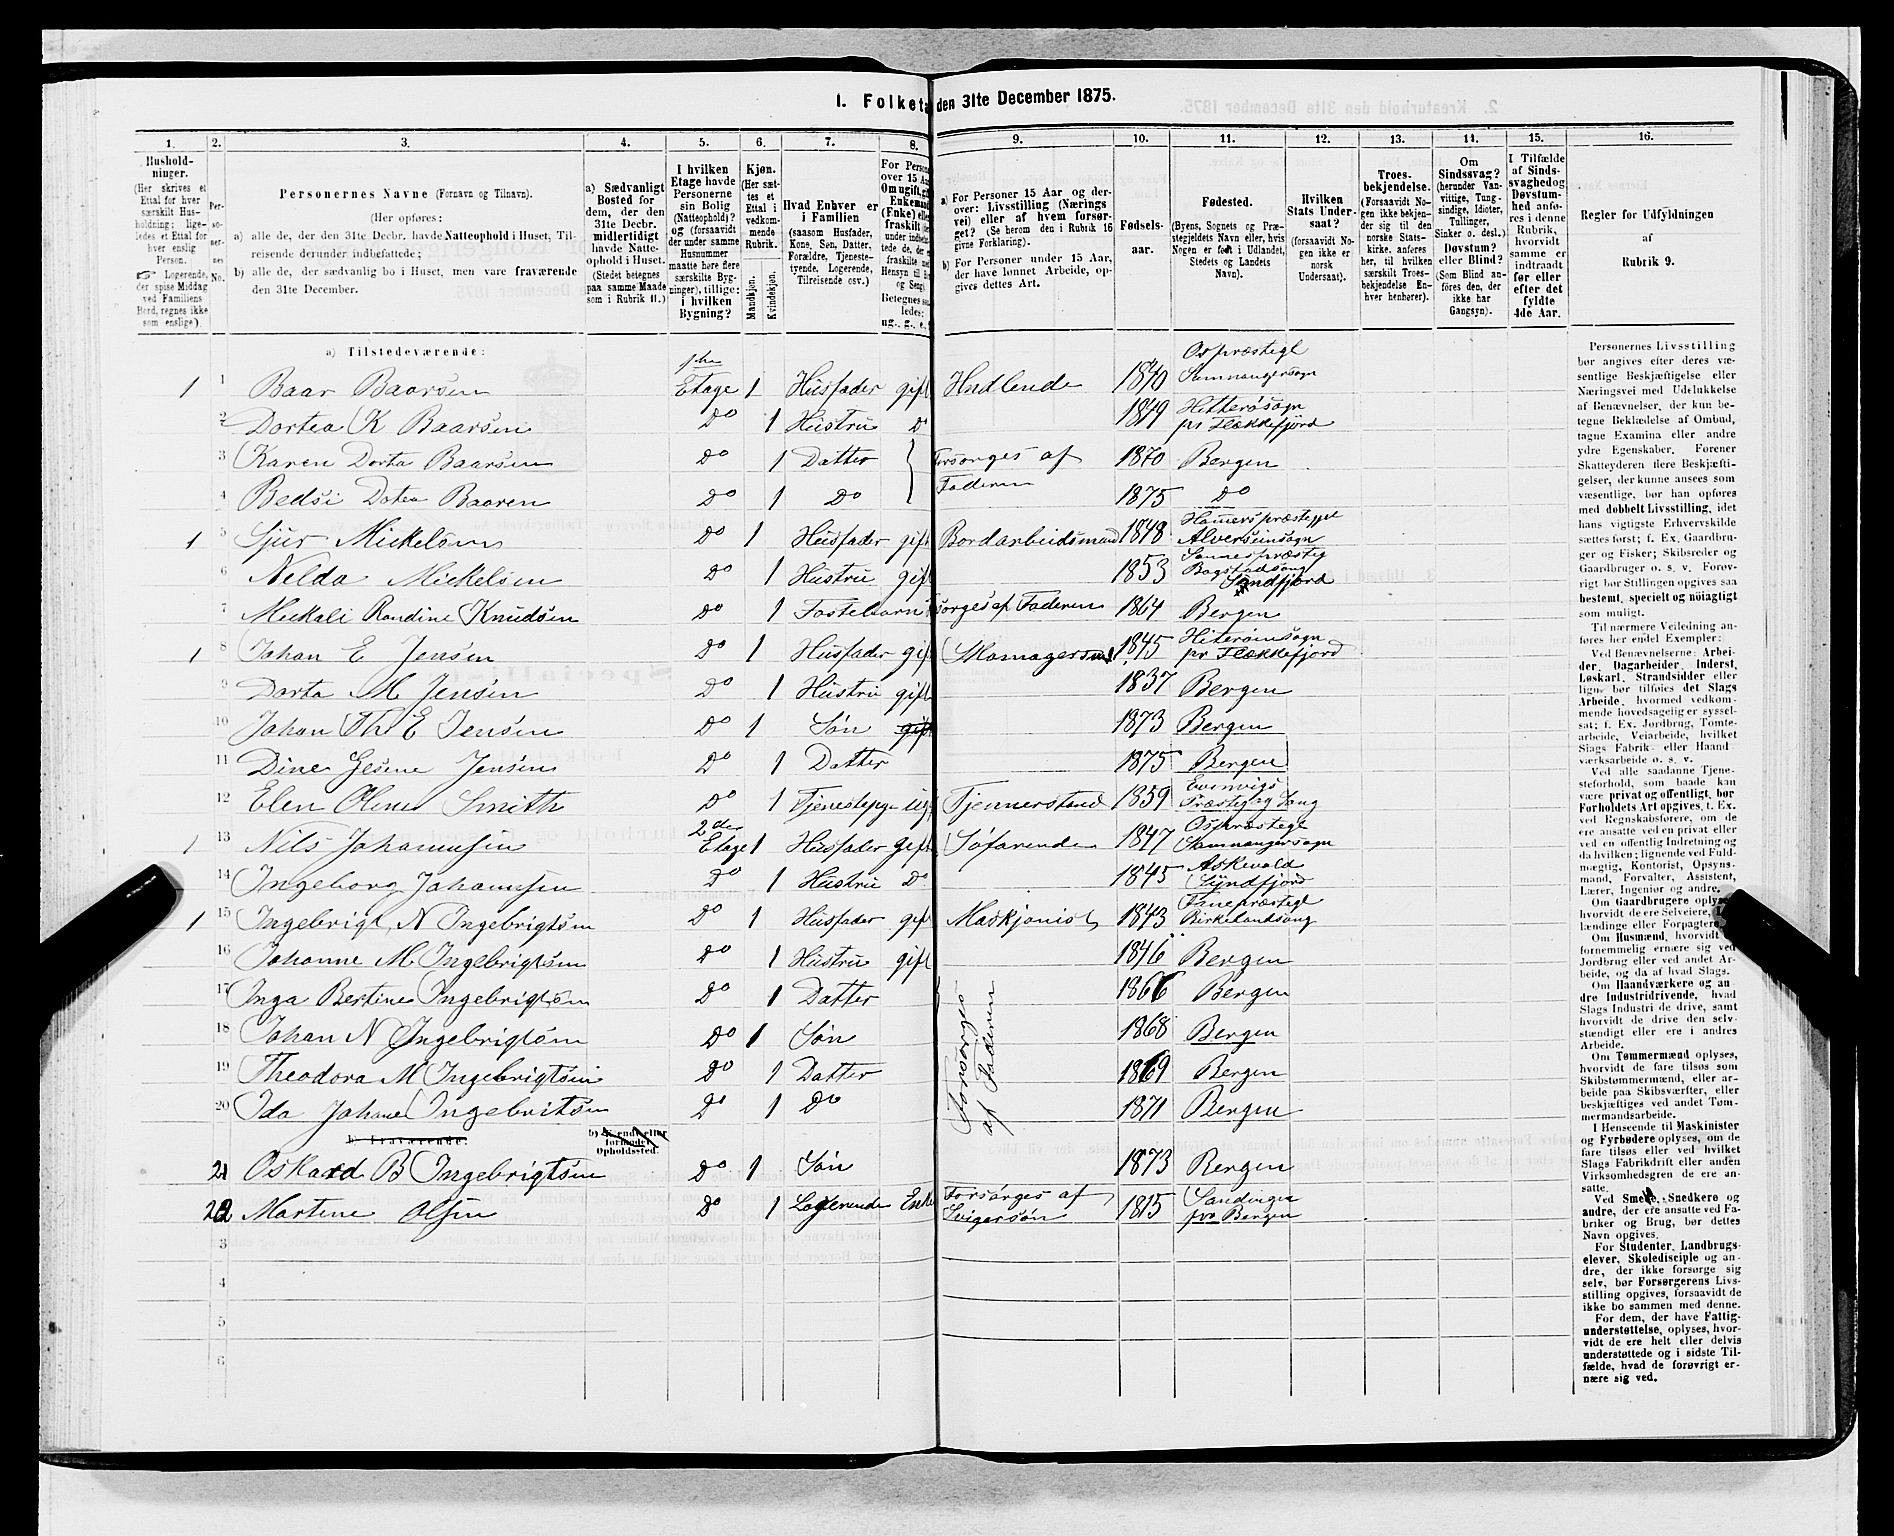 1. Folketa den 31te December 1875.
1. 2. 3. 4. 5. 6. 7. 8. 9. 10. 11. 12. 13. 14. 15. 16.
Hushold-
ninger.
(Her skrives et
Ettal for hver
særskilt Hus-
holdning; lige-
ledes et Ettal for
hver enslig
Person.
☞ Logerende,
der spise Middag
ved Familiens
Bord, regnes ikke
som enslige).
Per-
so-
ner-
nes
No.
Personernes Navne (Fornavn og Tilnavn).
(Her opføres:
a) alle de, der den 31te Decbr. havde Natteophold i Huset, Til-
reisende derunder indbefattede;
b) alle de, der sædvanlig bo i Huset, men vare fraværende
den 31te December.
a) Sædvanligt
Bosted for
dem, der den
31te Decbr.
midlertidigt
havde Natte-
ophold i Huset.
(Stedet betegnes
paa samme Maade
som i Rubrik 11.)
I hvilken
Etage havde
Personerne
sin Bolig
(Natteophold)?
og (forsaavidt
der under samme
Husnummer
maatte høre flere
særskilte Byg-
ninger), tillige:
i hvilken
Bygning?
Kjøn.
(Her sæt-
tes et
Ettal i
vedkom-
mende
Rubrik.
Mandkjøn.
Kvindekjøn.
Hvad Enhver er
i Familien
(saasom Husfader,
Kone, Søn, Datter,
Forældre, Tjeneste-
tyende, Logerende,
Tilreisende osv.)
For Person
over 15 Aa
Om ugift, gi
Enkemand
(Enke) elle
fraskilt de
under indbe
tede de, der
fraskilte me
Hensyn til B
og Seng.
Betegnes saa
ledes:
ug., g., e., f
a) For Personer 15 Aar og der-
over: Livsstilling (Nærings
vei) eller af hvem forsør-
get? (Se herom den i Rubrik 16
givne Forklaring).
b) For Personer under 15 Aar,
der have lønnet Arbeide, op-
gives dettes Art.
Fødsels-
aar.
Fødested.
(Byens, Sognets og Præ-
stegjeldets Navn eller, hvis
Nogen er født i Udlandet,
Stedets og Landets
Navn).
Hvilken
Stats Under-
saat?
(forsaavidt No-
gen ikke er
norsk
Undersaat).
Troes-
bekjendelse.
(Forsaavidt No-
gen ikke bekjen-
der sig til den
norske Stats-
kirke, anføres
her, til hvilken
særskilt Troes-
bekjendelse En-
hver henhører).
Om
Sindssvag?
(herunder Van-
vittige, Tung-
sindige, Idioter,
Tullinger,
Sinker o. desl.)
Døvstum?
eller Blind?
(Som Blind an-
føres den, der
ikke har
Gangsyn).
I Tilfælde
af Sinds-
svaghed og
Døvstum-
hed anfø-
res i denne
Rubrik,
hvorvidt
samme er
indtraadt
før eller
efter det
fyldte
4de Aar.
Regler for Udfyldningen
af
Rubrik 9.
a) Tilstedeværende:
1 1 Baar Baarsen 1ste Etage 1 Husfader gift Hndlende 1840 Ospræstegl Samnangersogn
2 Dortea K Baarsen Do 1 Hustru Do 1849 Hitterøsogn pr Flækkefjord
3 Karen Dorta Baarsen Do 1 Datter Forsørges af Faderen 1870 Bergen
4 Bedsi Dotea Baaren Do 1 Do 1875 Do
1 5 Sjur Mickelsen Do 1 Husfader gift Bordarbeidsmand 1848 Hamerspræstegjel Alversunsogn
6 Nelda Mickelsen Do 1 Hustru gift 1853 Bogstadsogn Søndfjord
7 Mickali Randine Knudsen Do 1 Fostebarn sørges af Faderen 1864 Bergen
1 8 Johan E Jensen Do 1 Husfader gift Skomager 1845 Hiterøinsogn pr Flækkefjord
9 Dorta M Jensen Do 1 Hustru gift 1837 Bergen
10 Johan Th E Jensen Do 1 Søn gift 1873 Bergen
11 Dine Gesene Jensen Do 1 Datter 1875 Bergen
12 Elen Oline Smith Do 1 Tjenestepge ug Tjennerstand 1859 Evenvigs Præstegj Sogn
1 13 Nils Johannesen 2den Etage 1 Husfader gift Søfarende 1847 Ospræstegl Samnangersogn
14 Ingeborg Johannesen Do 1 Hustru Do 1845 Askevold Syndfjord
1 15 Ingebrigt N Ingebrigtsen Do 1 Husfader gift Maskjonist 1843 Fanepræstegl Birkelandsogn
16 Johanne M Ingebrigtsen Do 1 Hustru gift 1846 Bergen
17 Inga Bertine Ingebrigtsen Do 1 Datter Forsørges af Faderen 1866 Bergen
18 Johan N Ingebrigtsen Do 1 Søn 1868 Bergen
19 Theodora M Ingebrigtsen Do 1 Datter 1869 Bergen
20 Ida Johane Ingebritsen Do 1 Do 1871 Bergen
b) Fraværende. b) Kjendt eller formodet Opholdssted.
21 Oskard B Ingebrigtsen Do 1 Søn 1873 Bergen
22 Martine Olsen Do 1 Logerende Enke Forsørges af Svigersøn 1815 Sandvigen pr Bergen
3
4
5
6
Personernes Livsstilling
bør angives efter deres væ-
sentlige Beskjæftigelse eller
Næringsvei med Udelukkelse
af Benævnelser, der kun be-
tegne Beklædelse af Ombud,
tagne Examina eller andre
ydre Egenskaber. Forener
Skatteyderen flere Beskjæfti-
gelser, der kunne ansees som
væsentlige, bør han opføres
med dobbelt Livsstilling, idet
hans vigtigste Erhvervskilde
sættes først; f. Ex. Gaardbru-
ger og Fisker; Skibsreder og
Gaardbruger o. s. v. Forøv-
rigt bør Stillingen opgives saa
bestemt, specielt og nøiagtigt
som muligt.
Til nærmere Veiledning an-
føres her endel Exempler:
Ved Benævnelserne: Arbei-
der, Dagarbeider, Inderst,
Løskarl, Strandsidder eller
lign. bør tilføies det Slags
Arbeide, hvormed vedkom-
mende hovedsagelig er syssel-
sat; f. Ex. Jordbrug, Tomte-
arbeide, Veiarbeide, hvilket
Slags Fabrik- eller Haand-
værksarbeide o. s. v.
Ved alle saadanne Tjene-
steforhold, som baade kan
være privat og offentligt, bør
Forholdets Art opgives, t. Ex.
ved Regnskabsførere, om de
ere ansatte ved en privat eller
ved en offentlig Indretning og
da hvilken; lignende ved Fuld-
mægtig, Kontorist, Opsyns-
mand, Forvalter, Assistent,
Lærer, Ingeniør og andre.
Om Gaardbrugere oplyses,
hvorvidt de ere Selveiere,
lændinge eller Forpagtere.
Om Husmænd, hvorvidt
fornemmelig ernære sig ved
Jordbrug eller ved andet Ar-
beide, og da af hvad Slags.
Om Haandværkere og an-
dre Industridrivende, hvad
Slags Industri de drive, samt
hvorvidt de drive den selv-
stændigt eller ere i andres
Arbeide.
Om Tømmermænd oplyses,
hvorvidt de fare tilsøs som
Skibstømmermænd, eller ar-
beide paa Skibsværfter, eller
beskjæftiges ved andet Tøm-
mermandsarbeide.
I Henseende til Maskinister
og Fyrbødere oplyses, om de
fare tilsøs eller ved hvilket
Slags Fabrikdrift eller anden
Virksomhedsgren de ere an-
satte.
Ved Smede, Snedkere og
andre, der ere ansatte ved Fa-
briker og Brug, bør dettes
Navn opgives.
For Studenter, Landbrugs-
elever, Skoledisciple og an-
dre, der ikke forsørge sig
selv, bør Forsørgerens Livs-
stilling opgives, forsaavidt de
ikke bo sammen med denne.
For dem, der have Fattig-
understøttelse, oplyses, hvor-
vidt de ere helt eller delvis
understøttede og i sidste Til-
fælde, hvad de forøvrigt er-
nære sig ved.